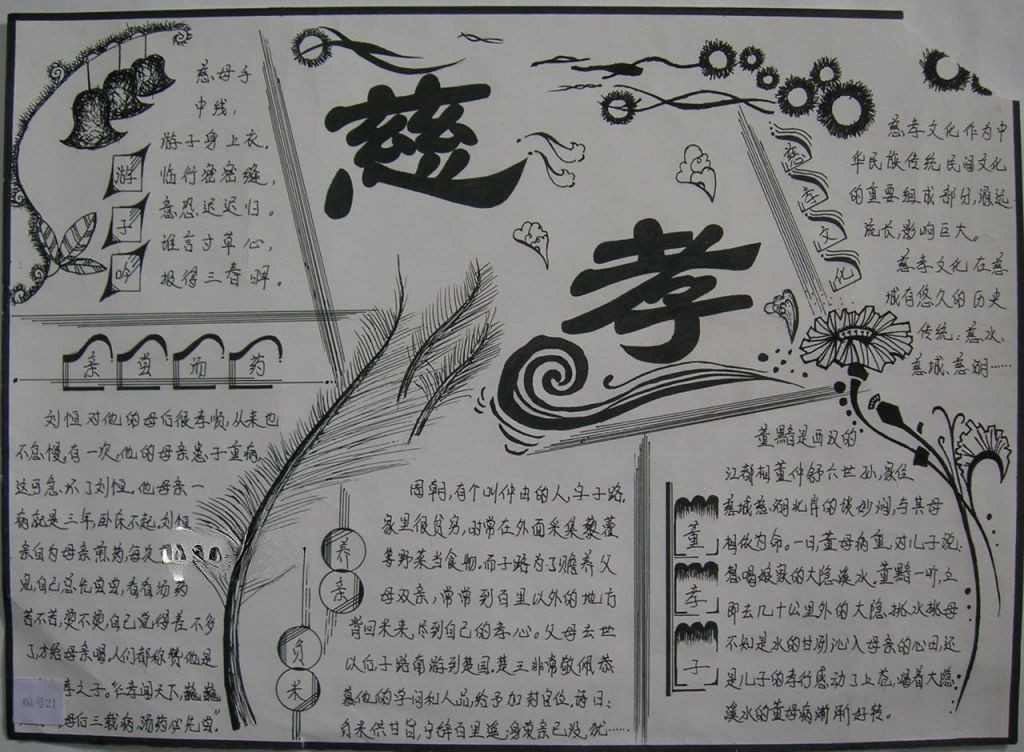 慈孝
游子吟
慈母手
中线，
游子身上衣，
临行密密缝，
意恐迟迟归。
谁言寸草心，
报得三春晖。
慈孝文化
慈孝文化作为中
华民族传统民间文化
的重要组成部分，源远
流长，影响巨大。
慈孝文化在慈
城有悠久的历史
传统：慈水、
慈城、慈湖……
亲尝汤药
刘恒对他的母后很孝顺，从来也
不怠慢，有一次，他的母亲患了重病，
这可急坏了刘恒。他母亲一
病就是三年，卧床不起，刘恒
亲自为母亲煎药，每次
见，自己总先尝尝，看看汤药
苦不苦，烫不烫，自己觉得差不多
了才给母亲喝。人们都称赞他是
孝之子。“仁孝闻天下，巍巍
母后三载病，汤药必先尝”
养亲负米
周朝，有个叫仲由的人，字子路，
家里很贫穷，时常在外面采集藜藿
等野菜当食物，而子路为了赡养父
母双亲，常常到百里以外的地方
背回米来，尽到自己的孝心。父母去世
以后子路南游到楚国，楚王非常敬佩恭
慕他的学问和人品，给予加封官位，诗曰：
负米供甘旨，宁辞百里遥，身荣亲已没，犹……
董孝子
董黯是西汉的
江都相董仲舒六世孙，家住
慈城慈湖北岸的谈妙涧，与其母
相依为命。一日，董母病重，对儿子说：
想喝娘家的大隐溪水，董黯一听，立
即去几十公里外的大隐，挑水挑母
不知是水的甘冽沁入母亲的心田，还
是儿子的孝行感动了上苍，喝着大隐
溪水的董母病渐渐好转。
编号21